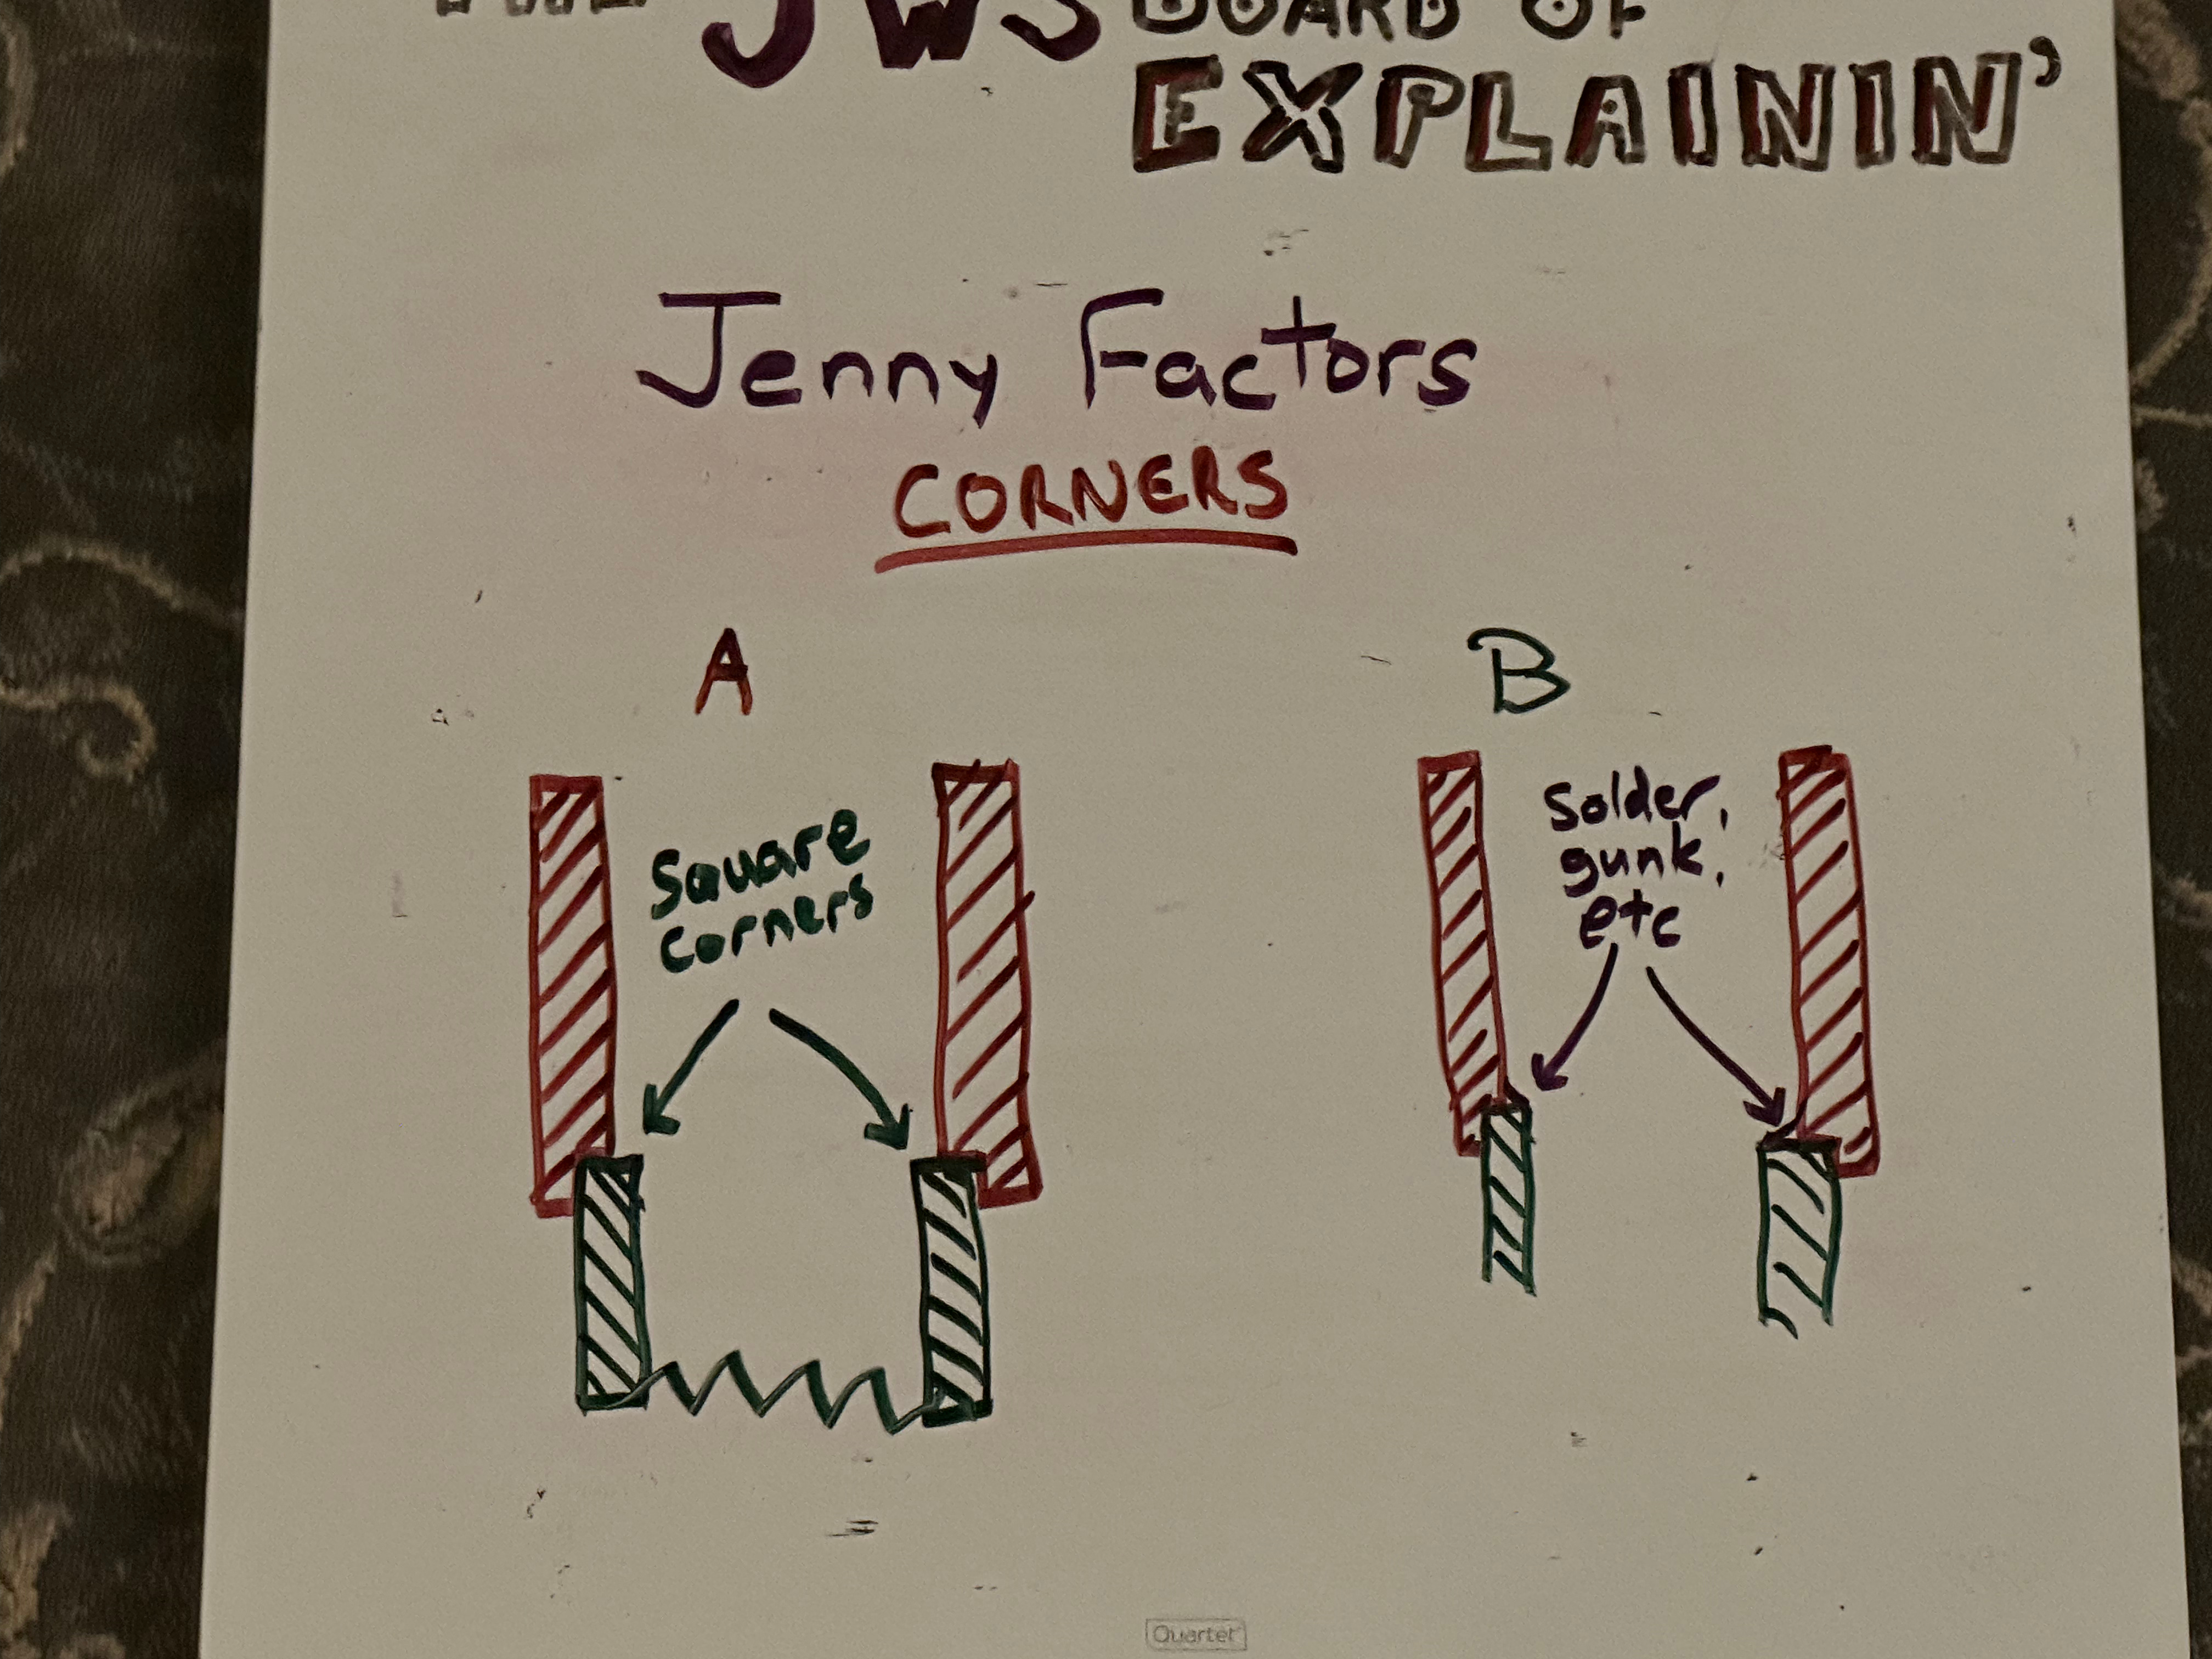 THE JWS BOARD OF
EXPLAININ'
Jenny Factors
CORNERS
A
B
Square
corners
Solder,
gunk,
etc
Quartet